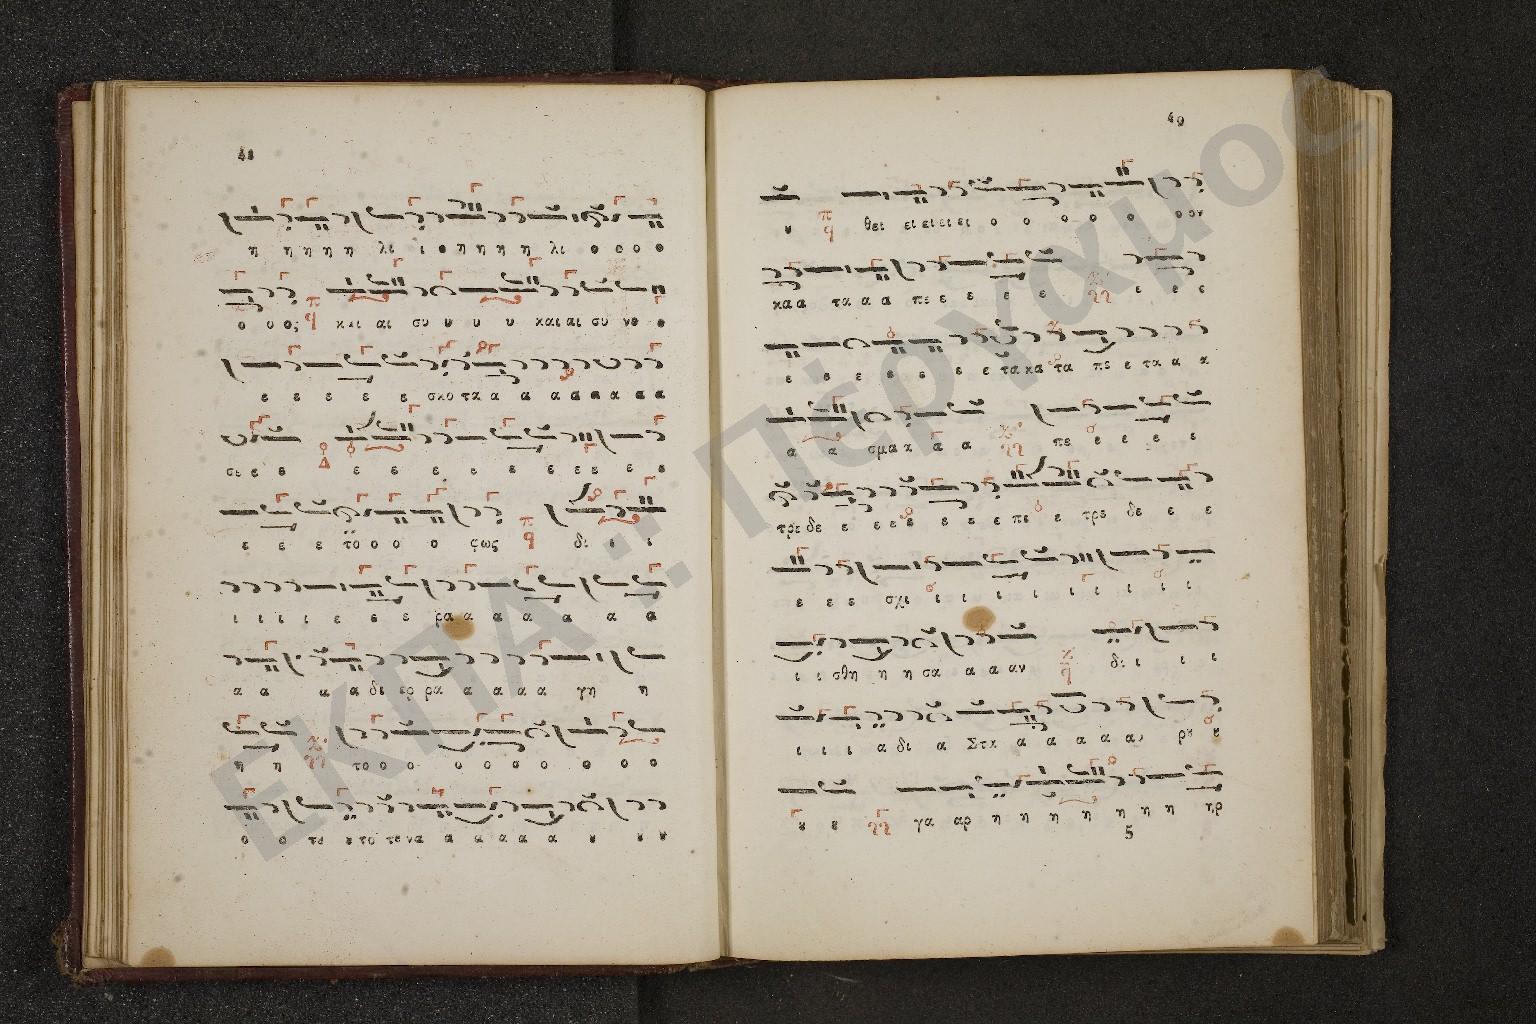 48
η η η η η λι ι ο η η η η λι ο ο ο ο
ο υος κυι αι συ υ υ υ και αι συ νε ε
ε ε ε ε ε σκο τα α α α α α α α α
σι ε ε ε ε ε ε ε ε ε ε ε ε ε
ε ε ε το ο ο ο ςως δι ι ι
ι ι ι ι ε ε ε ρα α α α α α α α
α α α α δι ερ ρα α α α α γη η
η η το ο ο ο ο ο ο ο ο ο ο
ο ο τε ε το τε να α α α α α
49
θει ει ει ει ει ο ο ο ο ο ο ουν
κα α τα α α πε ε ε ε ε ε ε ε
ε ε ε ε ε ε ε τα κα τα πε ε τα α α
α α σμα κ α α πε ε ε ε ε
τρε δε ε ε ε ε ε ε ε πε ε τρε δε ε ε
ε ε ε σχι ι ι ι ι ι ι ι ι ι
ι ι σθη η η σα α α αν δι ι ι ι
ι ι ι α δι α Στα α α α α α
γα αρ η η η η η η η ηρ
5
ΕΚΠΑ :: Πέργαμος